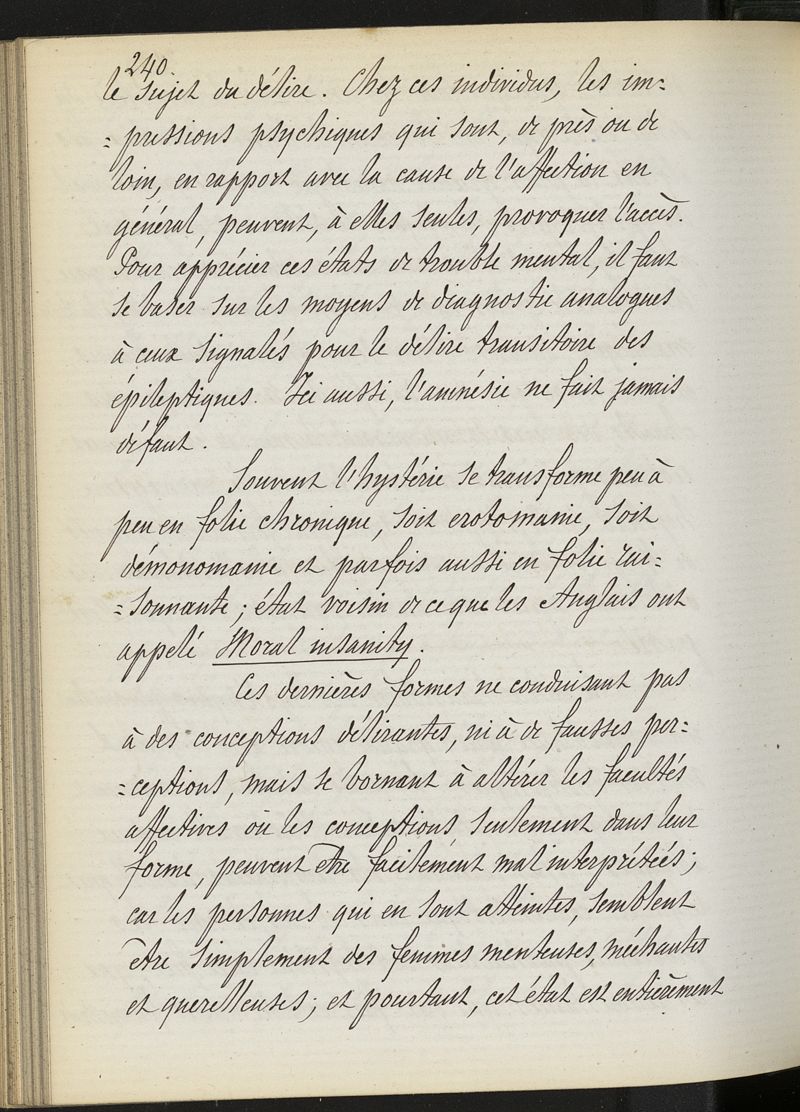 240.
le sujet du délire. Chez ces individus, les im=
=pressions psychiques qui sont, de près ou de
loin, en rapport avec la cause de l'affection en
général, peuvent, à elles seules, provoquer l'accès.
Pour apprécier ces états de trouble mental, il faut
se baser sur les moyens de diagnostic analogues
à ceux signalés pour le délire transitoire des
épileptiques. Ici aussi, l'amnésie ne fait jamais
défaut.
Souvent l'hystérie se transforme peu à
peu en folie chronique, soit erotomanie, soit
démonomanie et parfois aussi en folie rai=
=sonnante; état voisin de ce que les Anglais ont
appelé Moral insanity.
Ces dernières formes ne conduisant pas
à des conceptions délirantes, ni à de fausses per=
=ceptions, mais se bornant à altérer les facultés
affectives où les conceptions seulement dans leur
forme, peuvent être facilement mal interprétées;
car les personnes qui en sont atteintes, semblent
être simplement des femmes menteuses, méchantes
et querelleuses; et pourtant, cet état est entièrement